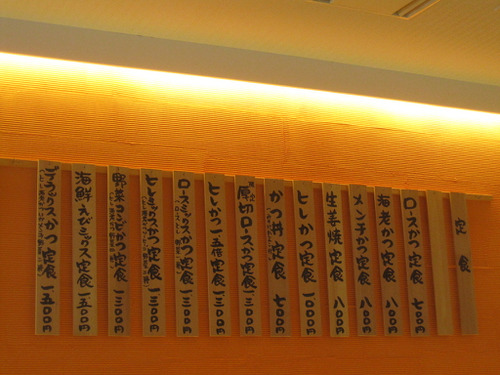 定食
ロースかつ定食 七〇〇円
海老かつ定食 八〇〇円
メンチかつ定食 八〇〇円
生姜焼定食 八〇〇円
ヒレかつ定食 一〇〇〇円
かつ丼定食 七〇〇
厚切ロースかつ定食 一三〇〇
ヒレかつ一.五倍定食 一三〇〇
ロースミックスかつ定食 一三〇〇円
ヒレミックスかつ定食 一三〇〇円
野菜コンビかつ定食 一三〇〇円
海鮮えびミックス定食 一五〇〇円
かつ定食 一五〇〇円